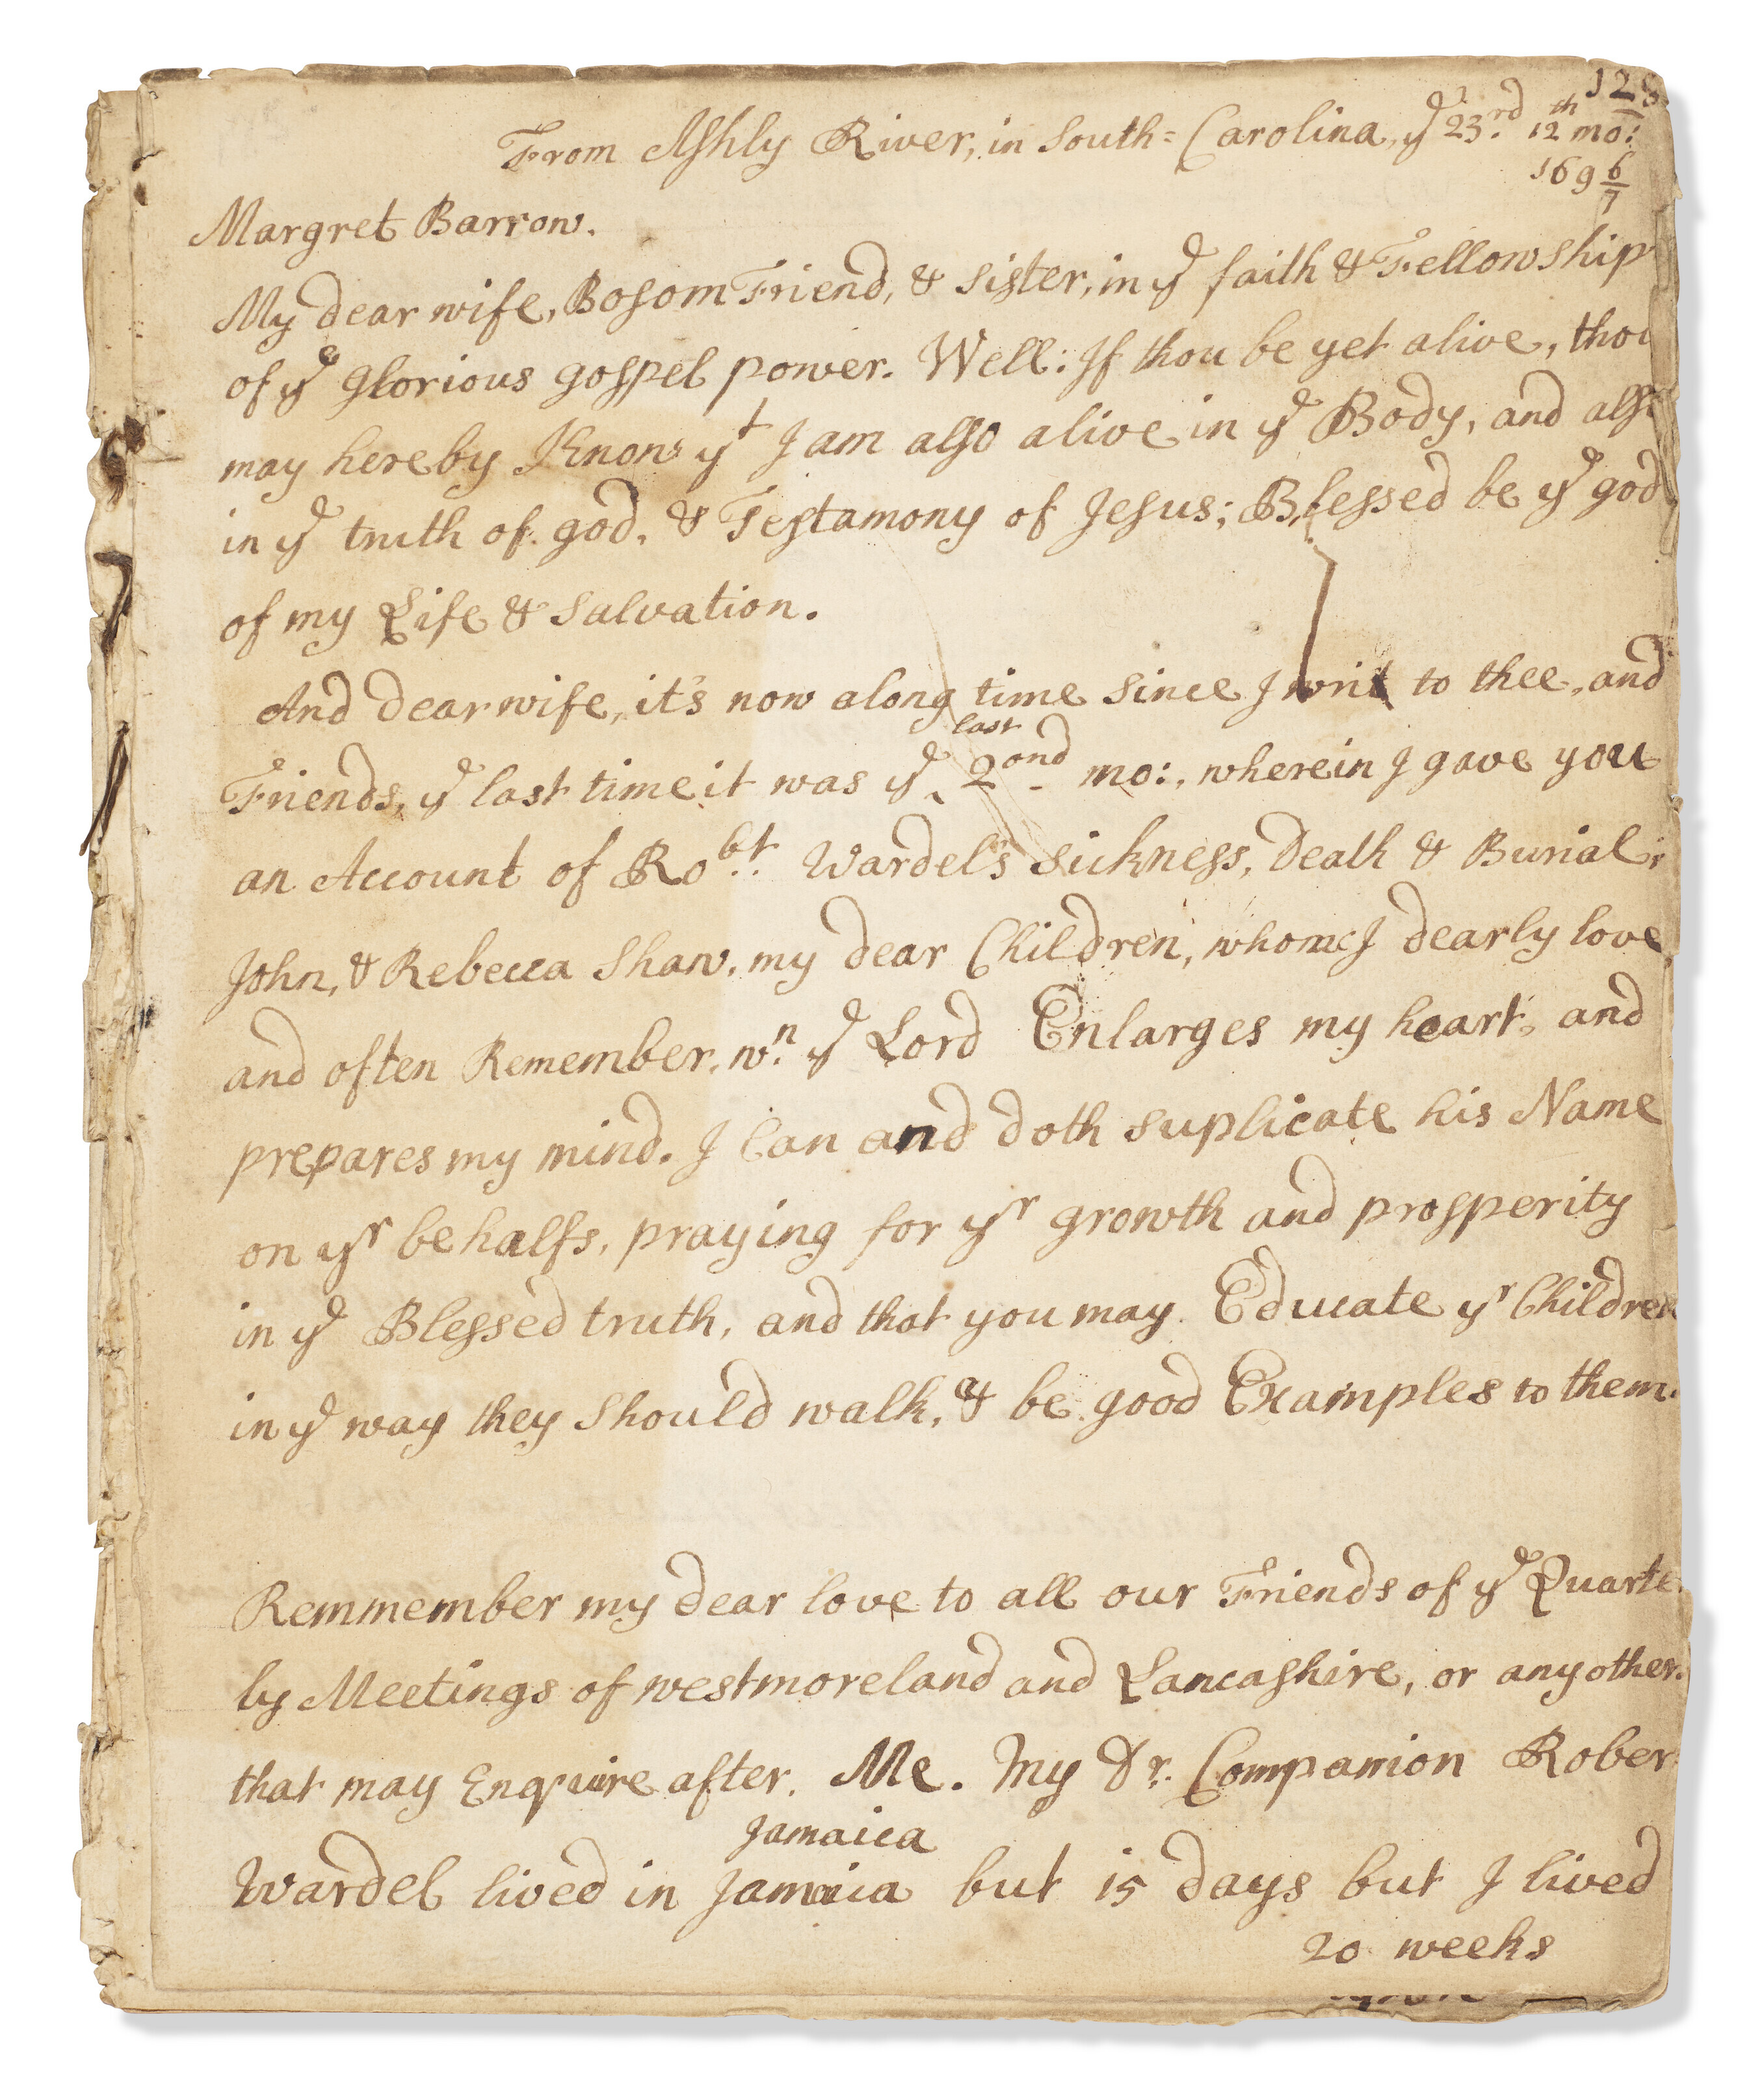 128
From Ashly River, in South=Carolina, ye 23rd 12th mo:
169 6/7
Margret Barrow.
My dear wife, Bosom Friend, & sister, in ye faith & Fellowship
of ye glorious gospel power. Well: If thou be yet alive, thou
may hereby Know yt I am also alive in ye Body, and also
in ye truth of god, & Testamony of Jesus; Blessed be ye god
of my Life & Salvation.
And dear wife, it's now along time since I writ to thee, and
last
Friends, ye last time it was ye 2ond mo:, wherein I gave you
an Account of Robt. Wardel's Sickness, Death & Burial;
John, & Rebecca Shaw, my dear Children, whome I dearly love
and often Remember, wn. ye Lord Enlarges my heart, and
prepares my mind. I Can and doth suplicate his Name
on yr behalfs, praying for yr growth and prosperity
in ye Blessed truth, and that you may Educate yr Children
in ye way they should walk, & be good Examples to them.
Remmember my dear love to all our Friends of ye Quarte
ly Meetings of westmoreland and Lancashire, or any other
that may Enquire after Me. My Dr. Companion Rober
Jamaica
Wardel lived in Jamaica but 15 days but I lived
20 weeks